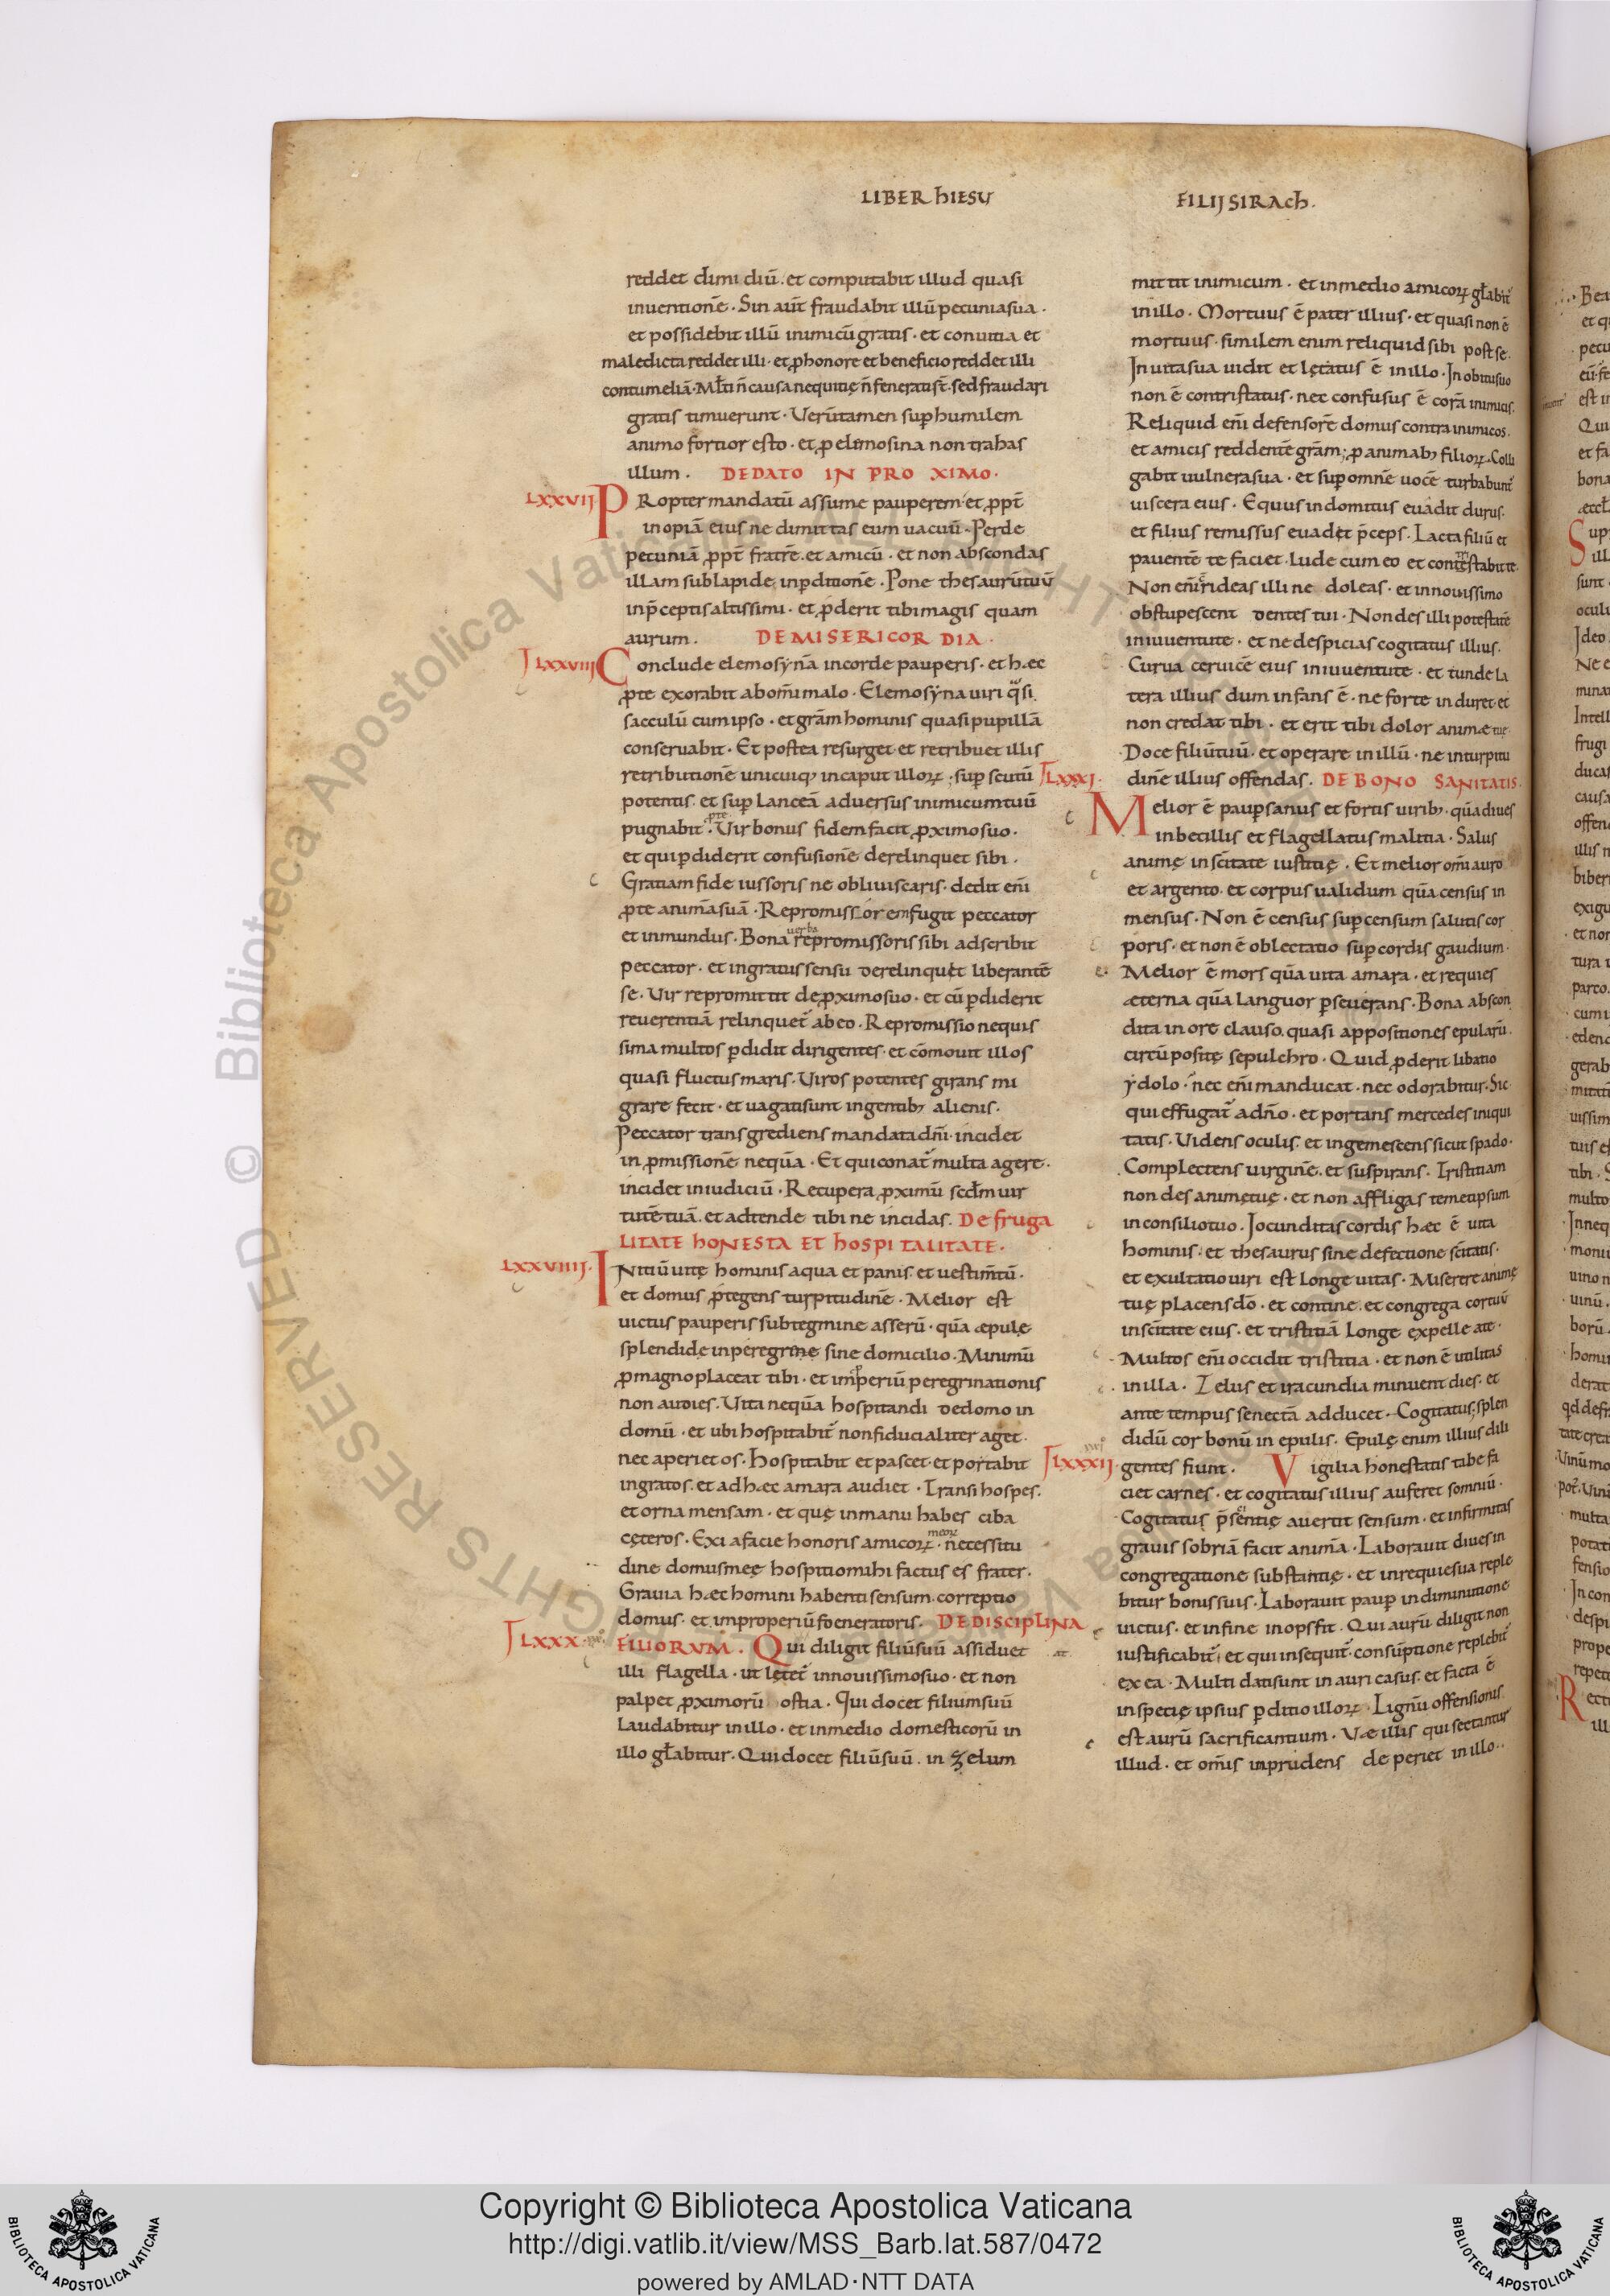 LIBER hIESV FILIJ SIRAch.
reddet dimidiū. et computabit illud quasi
inuentionē. Sin aut̄ fraudabit illū pecunia sua.
et possidebit illū inimicū gratis. et conuitia et
maledicta reddet illi. et ꝓ honore et beneficio reddet illi
contumeliā. Ml̄ti n̄ causa nequitię n̄ fenerati st̄. sed fraudari
gratis timuerunt. Verūtamen suꝑ humilem
animo fortior esto. et ꝓ elemosina non trahas
illum. DE DATO IN PROXIMO.
LXXVIJ PRopter mandatū assume pauperem. et ꝓpt̄
inopiā eius ne dimittas eum uacuū. Perde
pecuniā ꝓpt̄ fratrē. et amicū. et non abscondas
illam sub lapide in ꝑditionē. Pone thesaurū tuū
in p̄ceptis altissimi. et ꝓderit tibi magis quam
aurum. DE MISERICORDIA.
LXXVIIJ Conclude elemosẏnā in corde pauperis. et hæc
ꝓ te exorabit ab om̄i malo. Elemosẏna uiri q̄si
sacculū cum ipso. et grām hominis quasi pupillā
conseruabit. Et postea resurget et retribuet illis
retributionē unicuiqꝫ in caput illoꝝ. suꝑ scutū
potentis. et suꝑ lanceā aduersus inimicum tuū
pugnabit pte. Uir bonus fidem facit ꝓximo suo.
et qui ꝑdiderit confusionē derelinquet sibi.
Gratiam fideiussoris ne obliuiscaris. dedit eni̅
ꝓ te animā suā. Repromissorem fugit peccator
et inmundus. Bona uerba repromissoris sibi adscribit
peccator. et ingratus sensu derelinquet liberantē
se. Uir repromittit de ꝓximo suo. et cū ꝑdiderit
reuerentiā relinquet᷑ ab eo. Repromissio nequis
sima multos ꝑdidit dirigentes. et cōmouit illos
quasi fluctus maris. Uiros potentes girans mi
grare fecit. et uagati sunt in gentibꝫ alienis.
Peccator transgrediens mandata dn̄i. incidet
in ꝓmissionē nequā. Et qui conat᷑ multa agere.
incidet in iudiciū. Recupera ꝓximū scd̄m uir
tutē tuā. et adtende tibi ne incidas. De fruga
LITATE hONESTA ET hOSPITALITATE.
LXXVIIIJ. INitiū uitę hominis aqua et panis. et uestim̄tū.
et domus ꝓtegens turpitudinē. Melior est
uictus pauperis sub tegmine asserū. quā æpulę
splendide in peregrine sine domicilio. Minimū
ꝓ magno placeat tibi. et imꝓperiū peregrinationis
non audies. Uita nequā hospitandi de domo in
domū. et ubi hospitabit᷑ non fiducialiter aget.
nec aperiet os. hospitabit et pascet. et portabit
ingratos. et adhæc amara audiet. Transi hospes.
et orna mensam. et quę in manu habes ciba
cęteros. Exi a facie honoris amicoꝝ meoꝝ. necessitu
dine domus meę hospitio mihi factus es frater.
Grauia hæc homini habenti sensum. correptio
domus. et improperiū foeneratoris. DE DISCIPLINA
LXXX FILIORVM. Qui diligit filiū suū assiduet
illi flagella. ut lętet᷑ in nouissimo suo. et non
palpet ꝓximorū ostia. Qui docet filium suū
laudabitur in illo. et in medio domesticorū in
illo gl̄abitur. Qui docet filiū suū. in zelum
mittit inimicum. et in medio amicoꝝ gl̄abit᷑
in illo. Mortuus ē pater illius. et quasi non ē
mortuus. similem enim reliquid sibi post se.
In uita sua uidit et lętatus ē in illo. In obitu suo
non ē contristatus. nec confusus ē corā inimicis.
Reliquid eni̅ defensorē domus contra inimicos.
et amicis reddentē grām; ꝓ animabꝫ filioꝝ. Colli
gabit uulnera sua. et suꝑ omnē uocē turbabunt᷑
uiscera eius. Equus indomitus euadit durus.
et filius remissus euadet p̄ceps. Lacta filiū et
pauentē te faciet. Lude cum eo et contristabit te.
Non eni̅ rideas illi ne doleas. et in nouissimo
obstupescent dentes tui. Non des illi potestatē
in iuuentute. et ne despicias cogitatus illius.
Curua ceruicē eius in iuuentute. et tunde la
tera illius dum infans ē. ne forte induret. et
non credat tibi. et erit tibi dolor animæ tue.
Doce filiū tuū. et operare in illū. ne in turpitu
LXXXI. dinē illius offendas. DE BONO SANITATIS.
Melior ē pauꝑ sanus et fortis uiribꝫ. quā diues
inbecillis et flagellatus malitia. Salus
animę in sc̄itate iustitię. Et melior om̄i auro
et argento. et corpus ualidum quā census in
mensus. Non ē census suꝑ censum salutis cor
poris. et non ē oblectatio suꝑ cordis gaudium.
Melior ē mors quā uita amara. et requies
æterna quā languor ꝑseuerans. Bona abscon
dita in ore clauso. quasi appositiones epularū.
circūposite sepulchro. Quid ꝓderit libatio
ẏdolo. nec eni̅ manducat. nec odorabitur. Sic
qui effugat᷑ a dn̄o. et portans mercedes iniqui
tatis. Uidens oculis. et ingemescens sicut spado.
Complectens uirginē. et suspirans. Tristitiam
non des animę tuę. et non affligas temetipsum
in consilio tuo. Jocunditas cordis hæc ē uita
hominis. et thesaurus sine defectione sc̄itatis.
et exultatio uiri est longeuitas. Miserere animę
tuę placens dō. et contine. et congrega cor tuū
in sc̄itate eius. et tristitiā longe expelle a te.
Multos eni̅ occidit tristitia. et non ē utilitas
in illa. Zelus et iracundia minuent dies. et
ante tempus senectā adducet. Cogitatus. splen
didū cor bonū in epulis. Epulę enim illius dili
LXXXIJ. gentes fiunt. Vigilia honestatis tabefa
ciet carnes. et cogitatus illius auferet somniū.
Cogitatus p̄sentię auertit sensum. et infirmitas
grauis sobriā facit animā. Laborauit diues in
congregatione substantię. et in requie sua reple
bitur bonis suis. Laborauit pauꝑ in diminutione
uictus. et in fine inops fit. Qui aurū diligit non
iustificabit᷑. et qui insequit᷑ consūptione replebit᷑
ex ea. Multi dati sunt in auri casus. et facta ē
in specię ipsius ꝑditio illoꝝ. Lignū offensionis
est aurū sacrificantium. Væ illis qui sectantur
illud. et om̄is inprudens deperiet in illo.
Copyright © Biblioteca Apostolica Vaticana
http://digi.vatlib.it/view/MSS_Barb.lat.587/0472
powered by AMLAD·NTT DATA